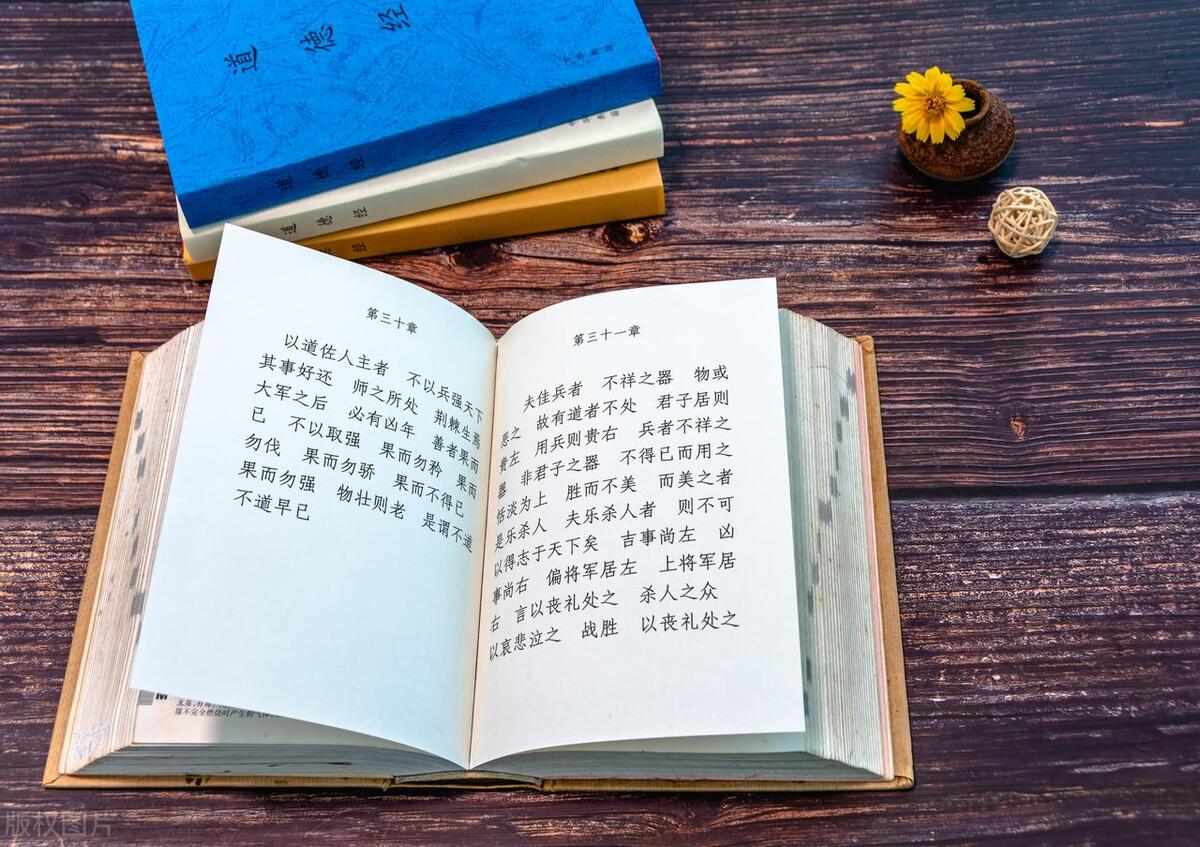 道德经
道德经
道德经
经
第三十章
以道佐人主者 不以兵强天下
其事好还 师之所处 荆棘生焉
大军之后 必有凶年 善者果而
已 不以取强 果而勿矜 果而
勿伐 果而勿骄 果而不得已
果而勿强 物壮则老 是谓不道
不道早已
第三十一章
夫佳兵者 不祥之器 物或
恶之 故有道者不处 君子居则
贵左 用兵则贵右 兵者不祥之
器 非君子之器 不得已而用之
恬淡为上 胜而不美 而美之者
是乐杀人 夫乐杀人者 则不可
以得志于天下矣 吉事尚左 凶
事尚右 偏将军居左 上将军居
右 言以丧礼处之 杀人之众
以哀悲泣之 战胜 以丧礼处之
煤不完全燃烧时产生的气体
版权图片